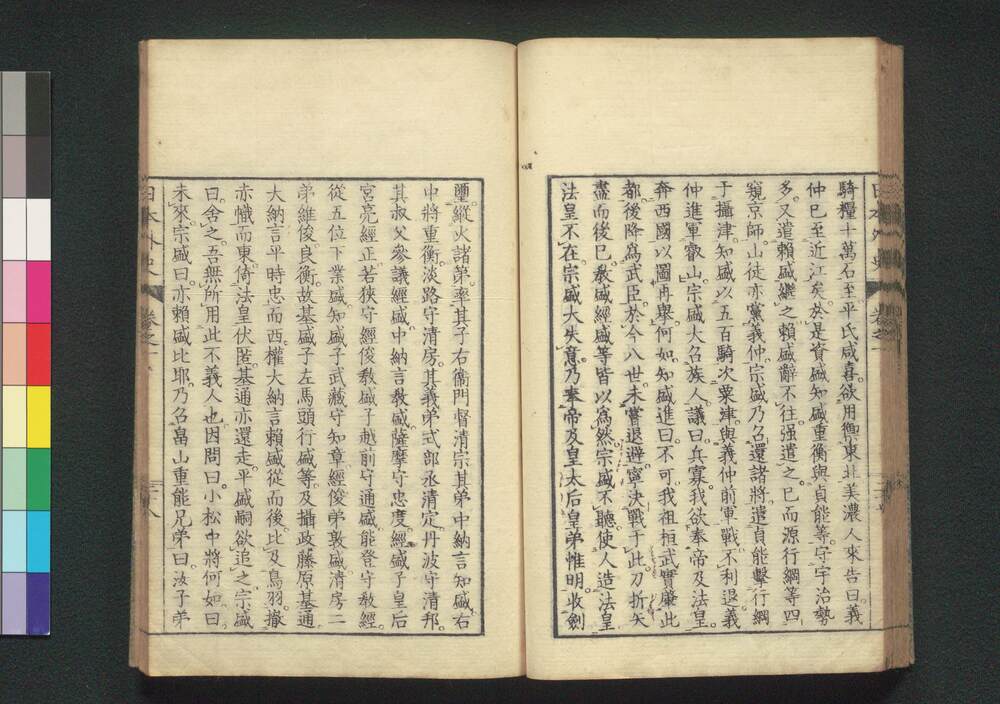 騎糧十萬石至平氏咸喜欲用禦東北美濃人來告曰義
仲已至近江矣於是資盛知盛重衡與貞能等守宇治勢
多又遣賴盛繼之賴盛辭不往强遣之已而源行綱等四
窺京師山徒亦黨義仲宗盛乃召還諸將遣貞能擊行綱
于攝津知盛以五百騎次粟津與義仲前軍戰不利退義
仲進軍叡山宗盛大召族人議曰兵寡我欲奉帝及法皇
奔西國以圖再舉何如知盛進曰不可我祖桓武實肇此
都後降爲武臣於今八世未嘗退避寧決戰于此刀折矢
盡而後已敎盛經盛等皆以爲然宗盛不聽使人造法皇
法皇不在宗盛大失意乃奉帝及皇太后皇弟惟明收劍
璽縱火諸第率其子右衞門督清宗其弟中納言知盛右
中將重衡淡路守清房其義弟式部丞清定丹波守清邦
其叔父參議經盛中納言敎盛薩摩守忠度經盛子皇后
宮亮經正若狹守經俊敎盛子越前守通盛能登守敎經
從五位下業盛知盛子武藏守知章經俊弟敦盛清房二
弟維俊良衡故基盛子左馬頭行盛等及攝政藤原基通
大納言平時忠而西權大納言賴盛從而後比及鳥羽撤
赤幟而東倚法皇伏匿基通亦還走平盛嗣欲追之宗盛
曰舍之吾無所用此不義人也因問曰小松中將何如曰
未來宗盛曰亦賴盛比耶乃召畠山重能兄弟曰汝子弟
日本外史 卷之一